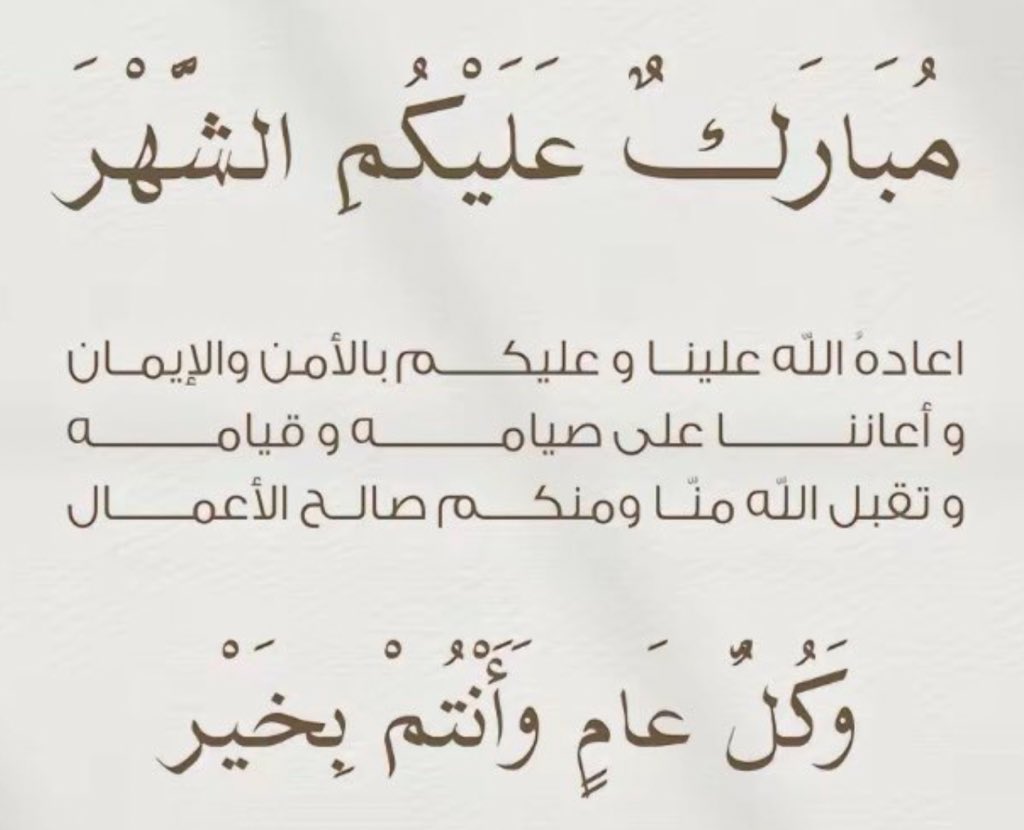 مُبَارَكٌ عَلَيْكُمِ الشَّهْرَ
اعادهُ اللّه علينا و عليكم بالأمن والإيمان
و أعاننا على صيامه و قيامه
و تقبل اللّه منّا ومنكم صالح الأعمال
وَكُلٌ عَامٍ وَأَنْتُمْ بِخَيْر